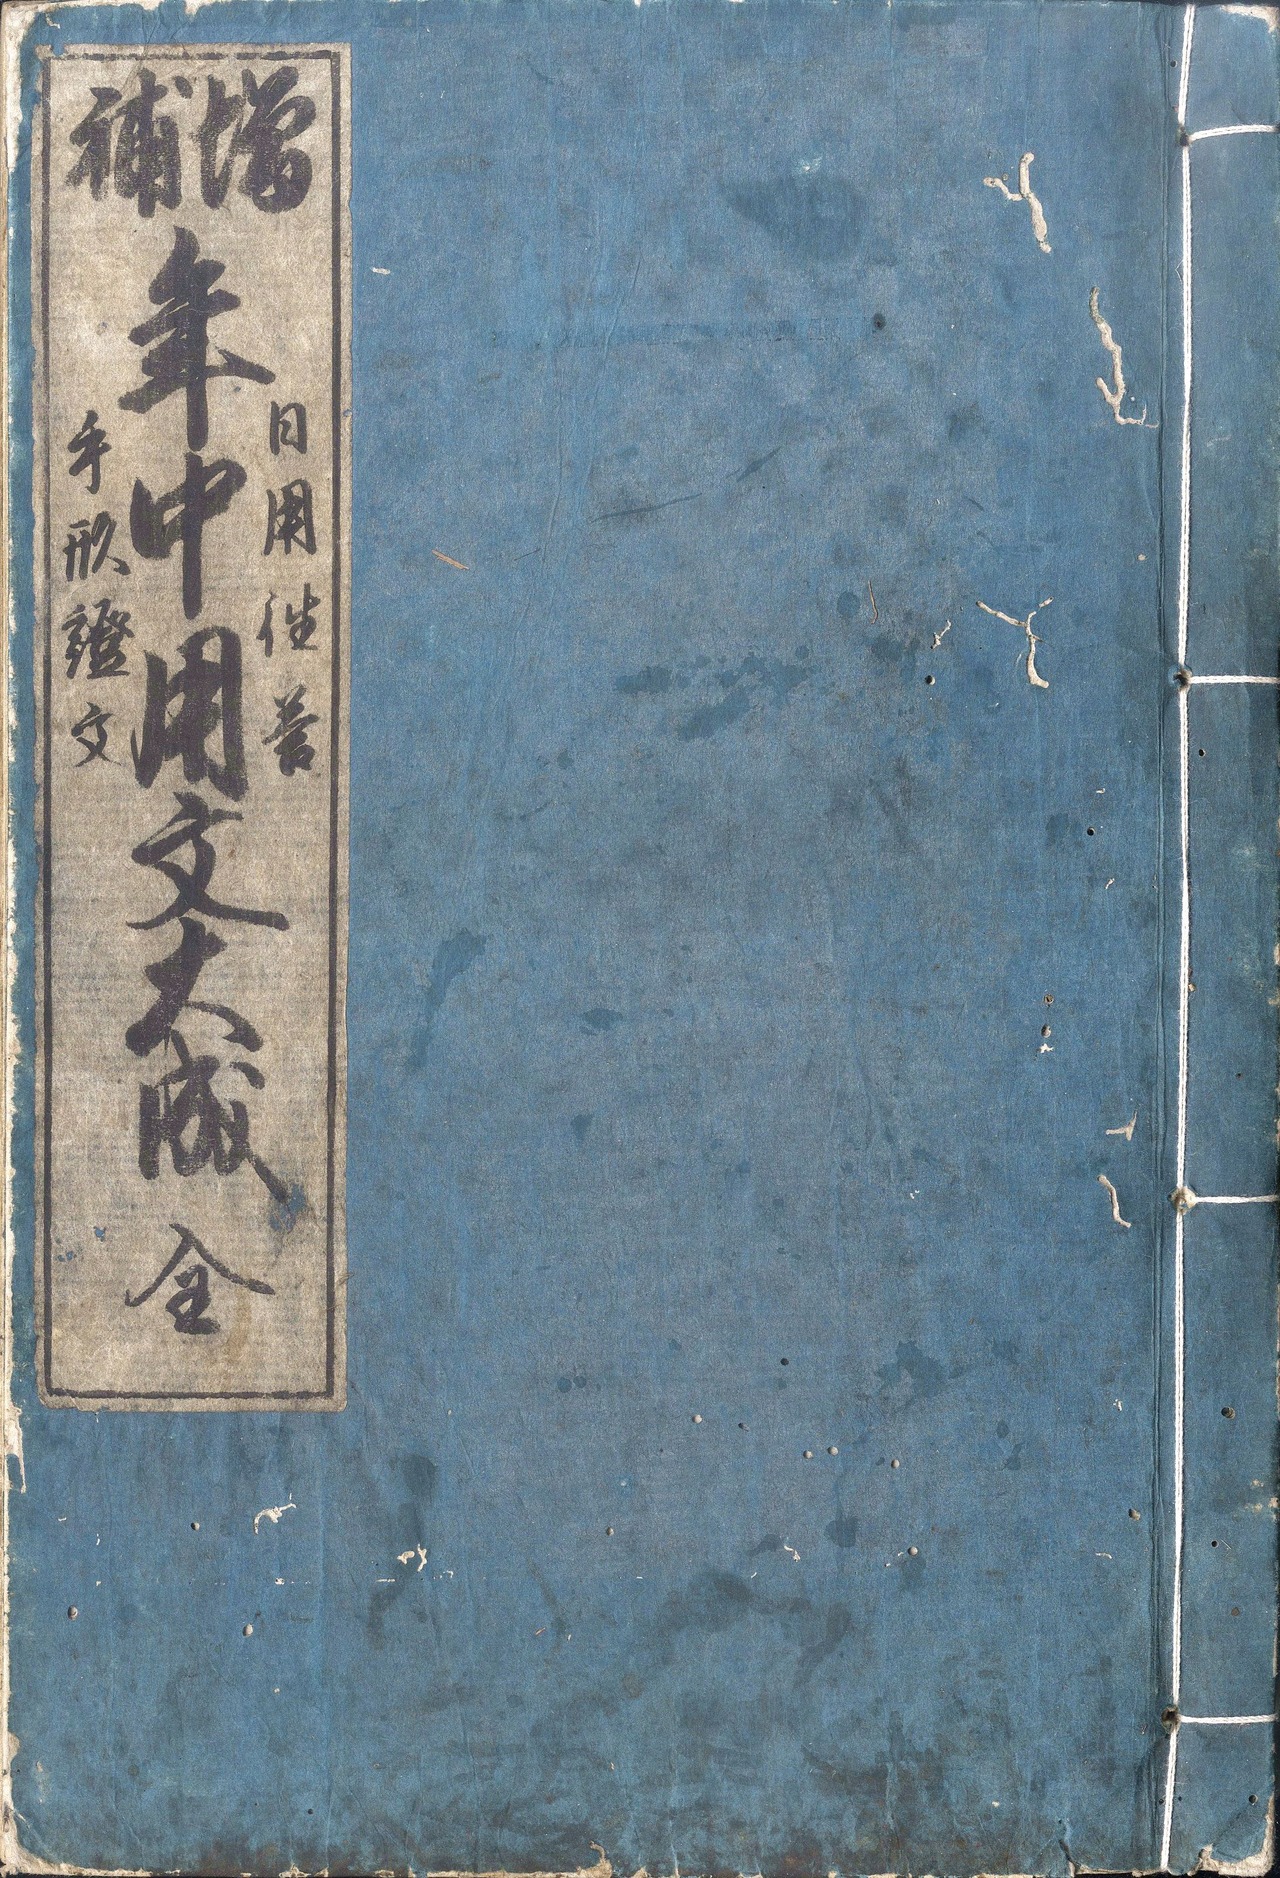 増補
日用往答
年中用文大成 全
手形證文